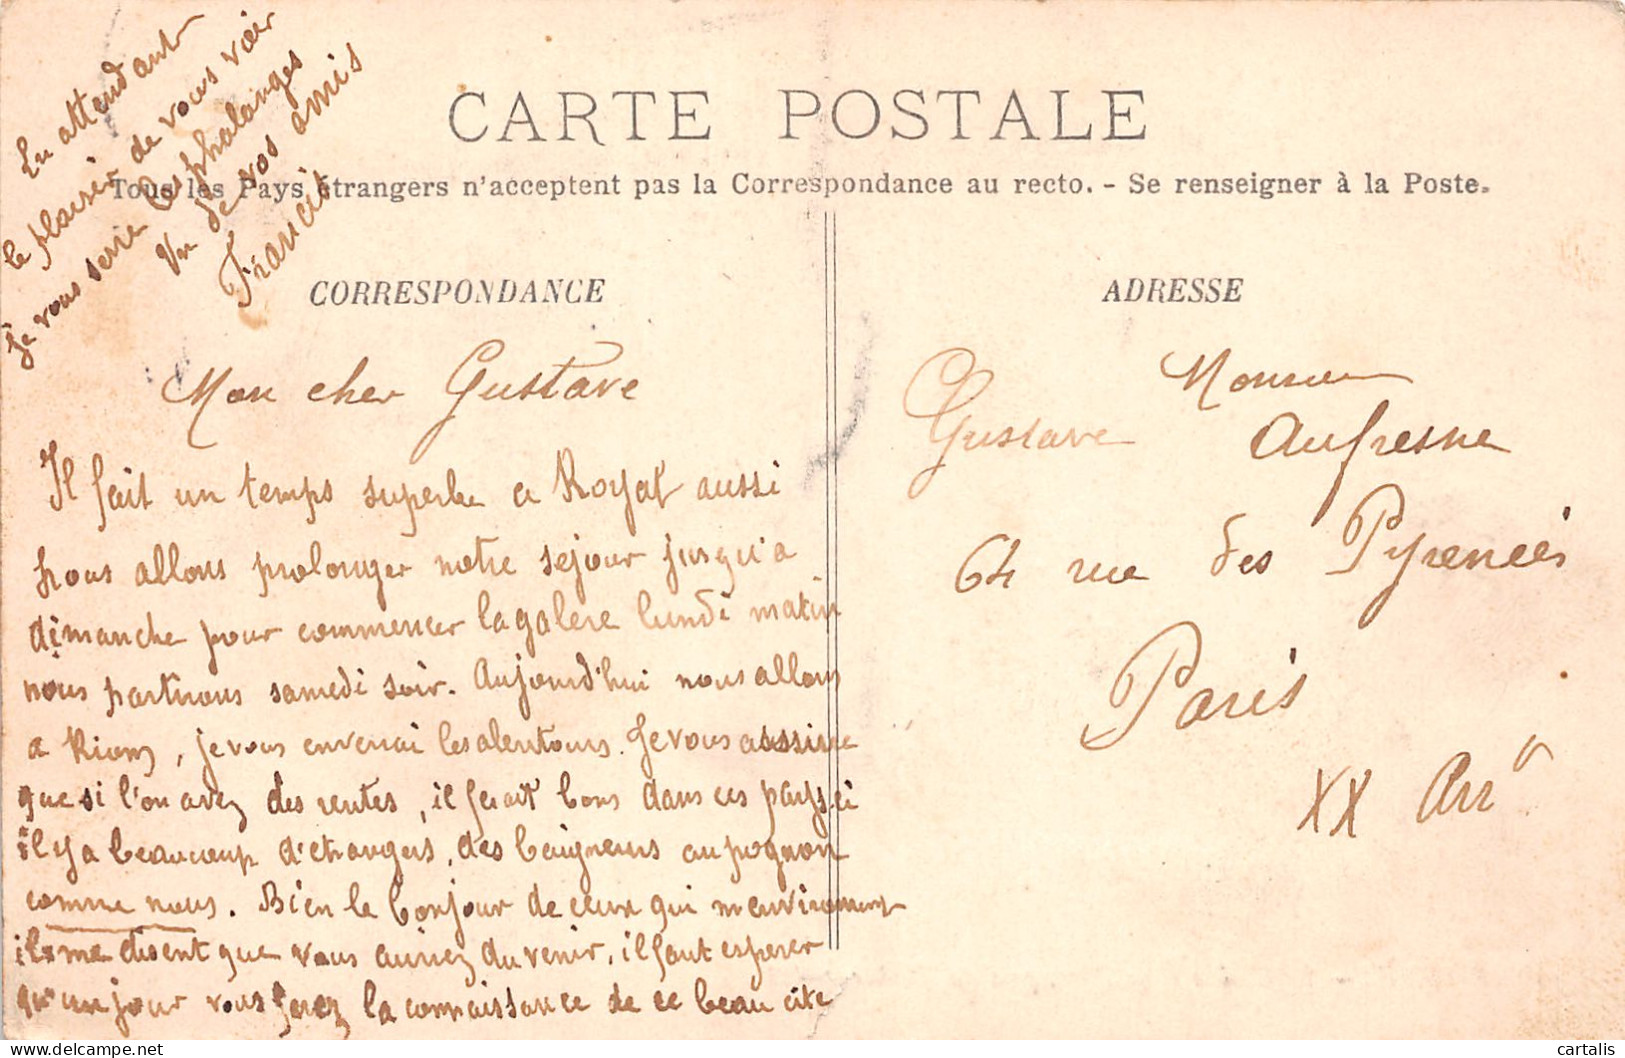 En attendant
le plaisir de vous voir
je vous serre les phalanges
Un de vos amis
Francis
CARTE POSTALE
Tous les Pays étrangers n'acceptent pas la Correspondance au recto. - Se renseigner à la Poste.
CORRESPONDANCE
Mon cher Gustave
Il fait un temps superbe a Royat aussi
nous allons prolonger notre sejour jusqu'a
dimanche pour commencer la galere lundi matin
nous partirons samedi soir. Aujourd'hui nous allons
a Riom, je vous enverrai les alentours. Je vous assure
que si l'on avez des rentes, il ferait bons dans ces pays ci
il y a beaucoup d'etrangers, des baigneurs au pognon
comme nous. Bien le bonjour de ceux qui m'environnent
ils me disent que vous auriez du venir, il faut esperer
qu'un jour vous ferez la connaissance de ce beau cite
ADRESSE
Monsieur
Gustave Aufresne
64 rue des Pyrenées
Paris
XX Arr
cartalis